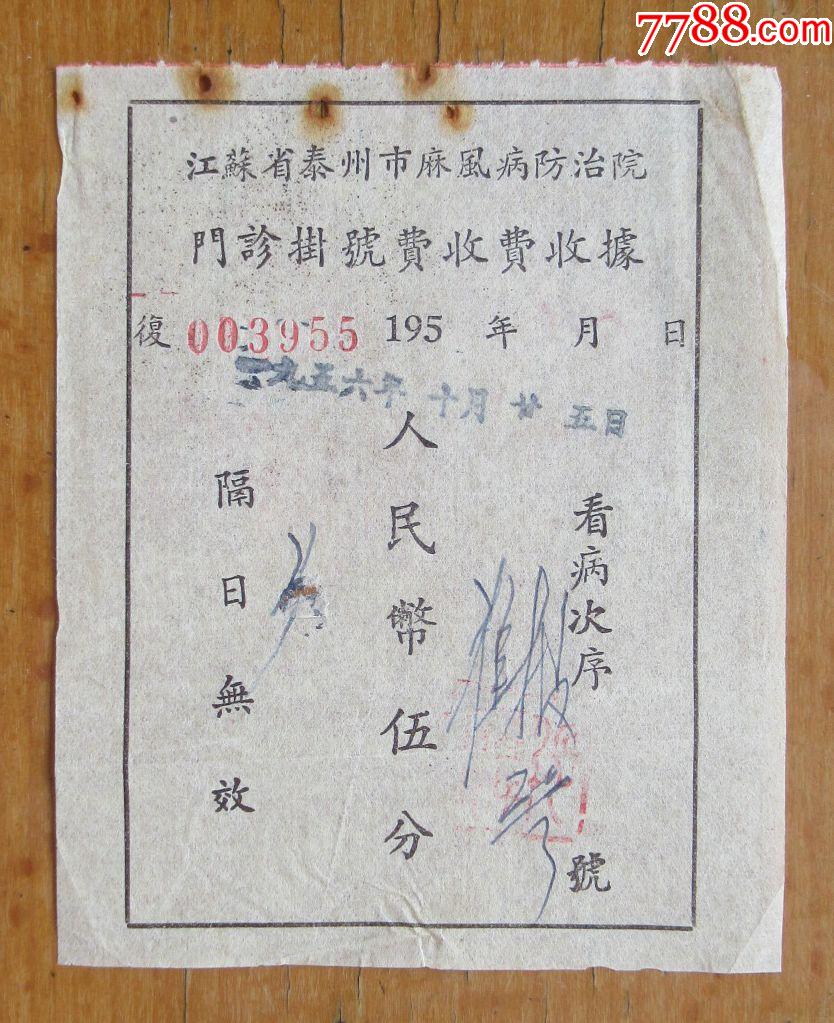 7788.com
江蘇省泰州市麻風病防治院
門診掛號費收費收據
復 003955 195 年 月 日
一九五六年 十月 廿五日
看病次序
號
人民幣伍分
隔日無效